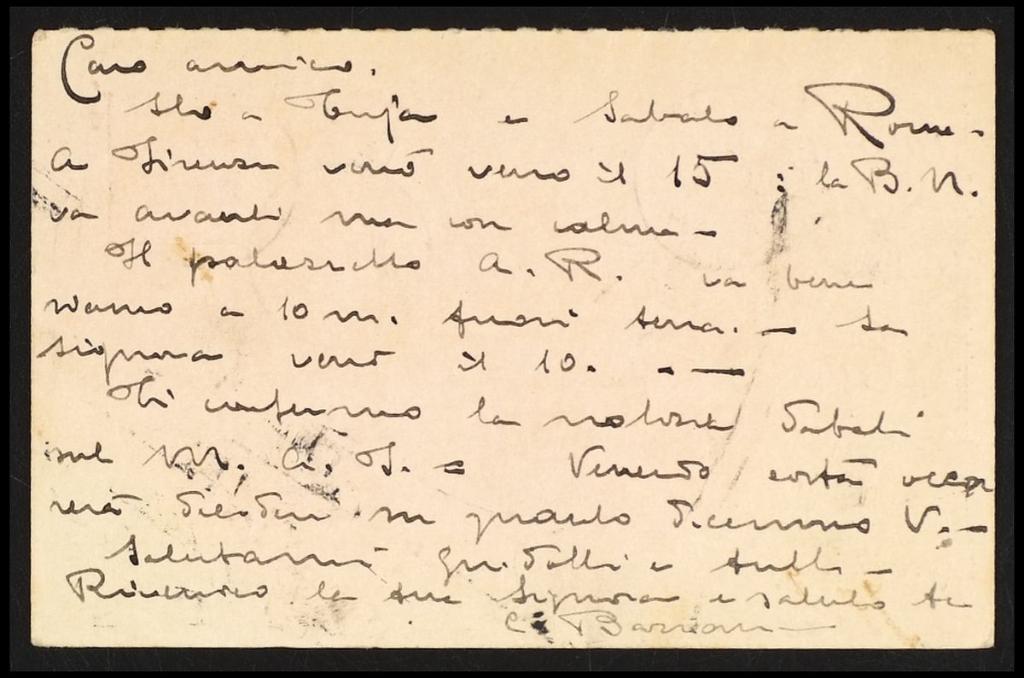 Caro amico.
Sto a Troja e Sabato a Roma -
A Firenze verrò verso il 15 : la B. N.
va avanti ma con calma -
Il palazzetto A. R. va bene
siamo a 10 m. fuori terra. - La
signora verrà il 10. - —
Ti confermo la notizia datati
sul M. A. F. - Venendo costà occor
rerà decidere su quanto dicemmo V. -
Salutami Guidotti e tutti -
Riverisco la tua Signora e saluto te
C. Bazzani